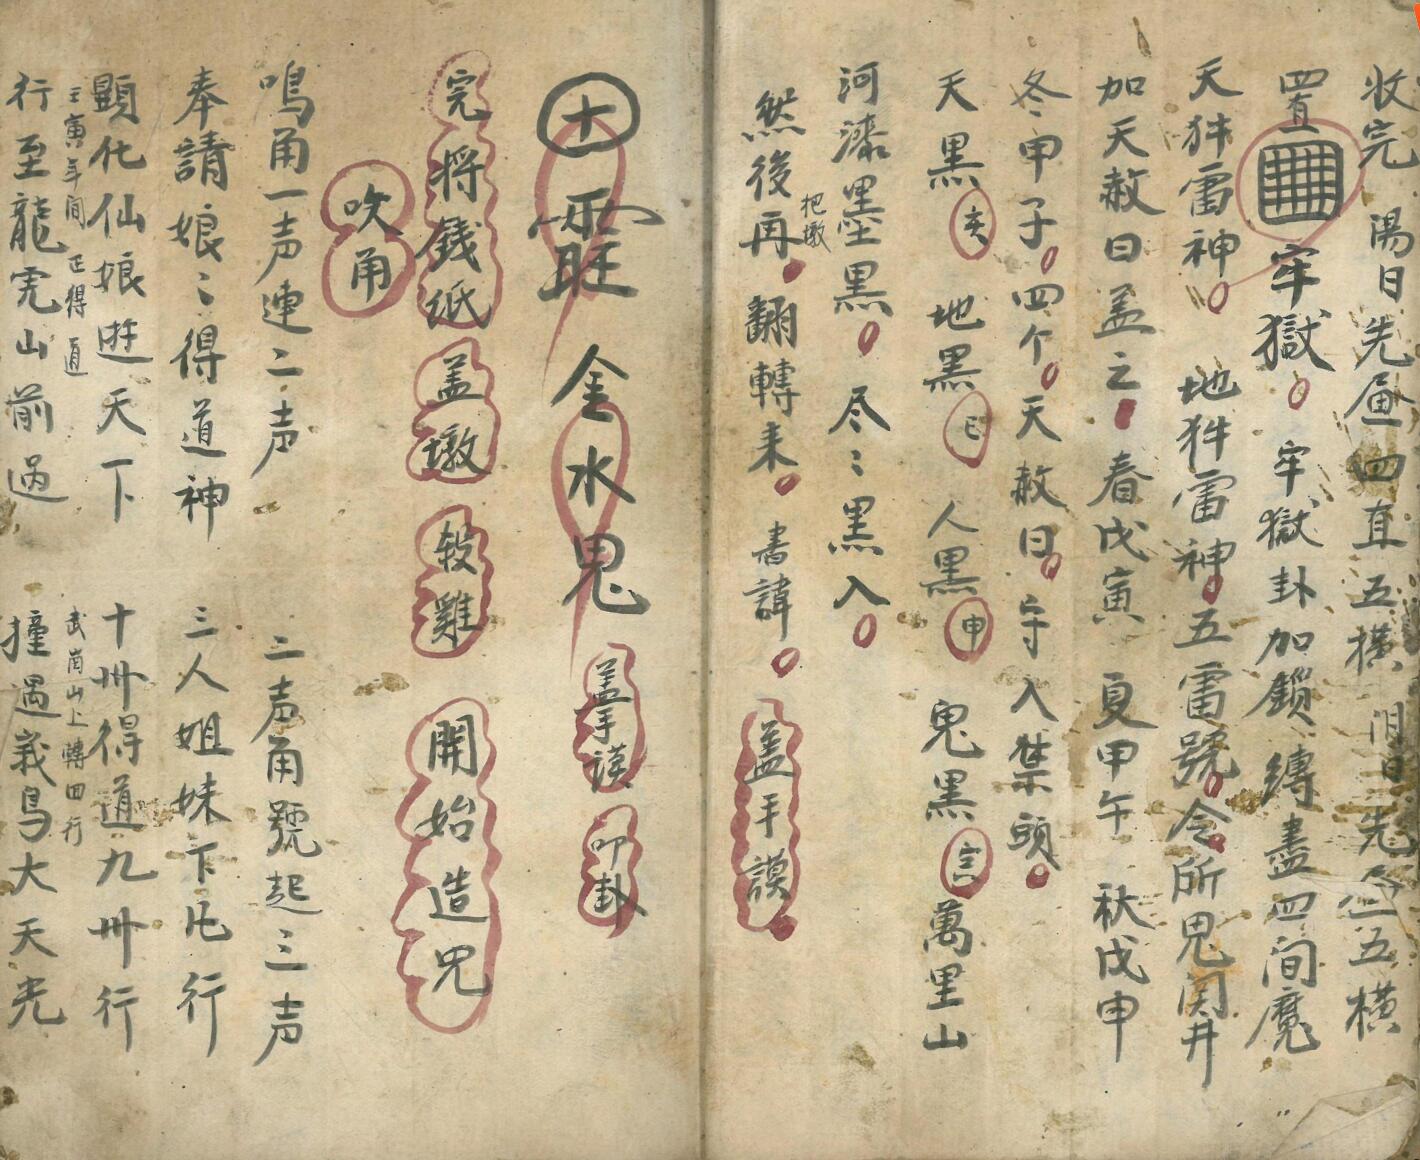 收完 陽日先画四直五横 阴日先画五横
四直 牢獄 牢獄卦加鎖縛盡四间魔
天牪雷神 地牪雷神五雷號令所鬼関井
加天赦日盖之春戊寅 夏甲午 秋戊申
冬甲子四个天赦日守入禁頭
天黑 地黑 人黑申 鬼黑言萬里山
河漆墨黑 尽〻黑入
把墩
然後再翻轉来 書諱 盖手謨
十 金水鬼 盖手謨 叩卦
完将錢紙 盖墩 殺雞 開始造咒
吹角
鳴角一声連二声 二声角號起三声
奉請娘〻得道神 三人姐妹下凡行
顯化仙娘遊天下 十卅得道九卅行
壬寅年间正得道 武崗山上轉回行
行至龍虎山前過 撞遇峩鳥大天光